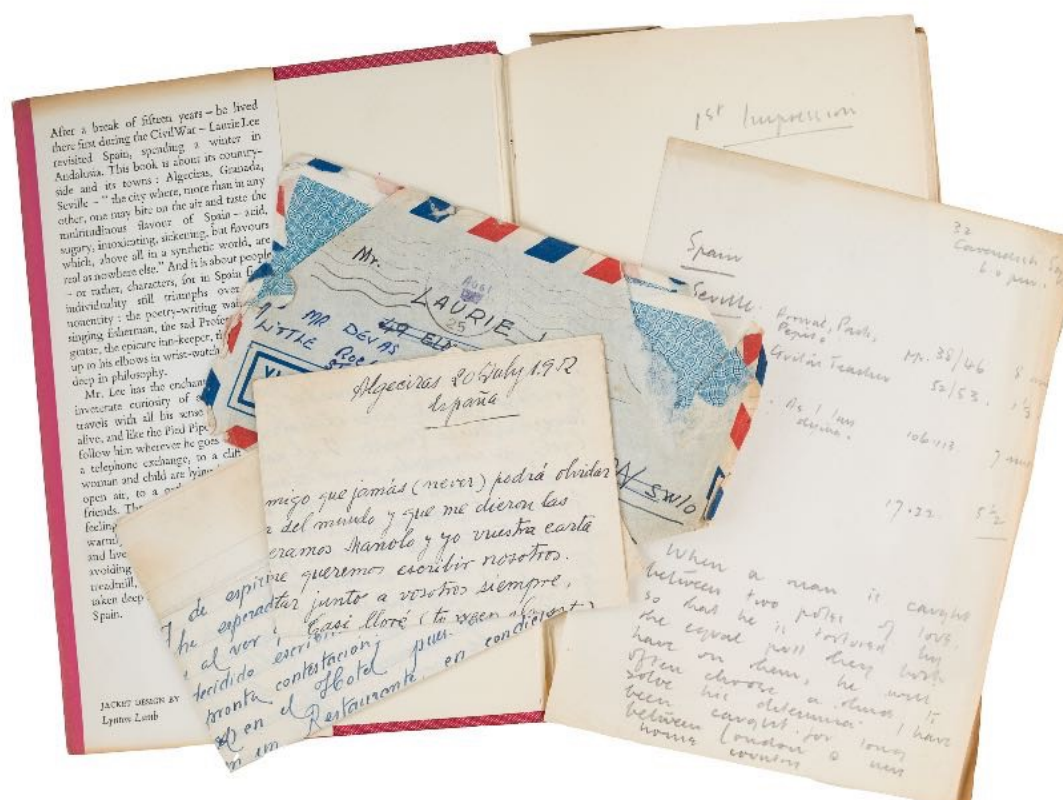 After a break of fifteen years – he lived
there first during the Civil War – Laurie Lee
revisited Spain, spending a winter in
Andalusia. This book is about its country-
side and its towns : Algeciras, Granada,
Seville – " the city where, more than in any
other, one may bite on the air and taste the
multitudinous flavour of Spain – acid,
sugary, intoxicating, sickening, but flavours
which, above all in a synthetic world, are
real as nowhere else." And it is about people
– or rather, characters, for in Spain
individuality still triumphs over
nonentity : the poetry-writing
singing fisherman, the sad
guitar, the epicure inn-keeper,
up to his elbows in wrist-watch
deep in philosophy.
Mr. Lee has the
inveterate curiosity of
travels with all his sense
alive, and like the Pied
follow him wherever he goes
a telephone exchange, to a cliff
woman and child are lying
open air, to a
friends.
feeling
warm
and live
avoiding
treadmill,
taken deep
Spain.
JACKET DESIGN BY
Lynton Lamb
Mr.
LAURIE
AUG
25
MR DEVAS
LITTLE
SW10
Algeciras 20 July 1952
España
migo que jamás (never) podrá olvidar
del mundo y que me dieron las
eramos Manolo y yo vuestra carta
queremos escribir nosotros.
tar junto a vosotros siempre,
Casi lloré (to
de
he
al ver
decidido
pronta contestación;
en el Hotel pues
un Restaurante, en
1st Impression
32
Spain
Seville.
pp. 38/46
52/53.
As I
106-113
17-22. 5½
When a man is caught
between two poles of love,
so that he is tortured by
the equal pull they both
have on them, he will
often choose a third, to
solve his dilemma. I have
been caught for long
between London & my
home country